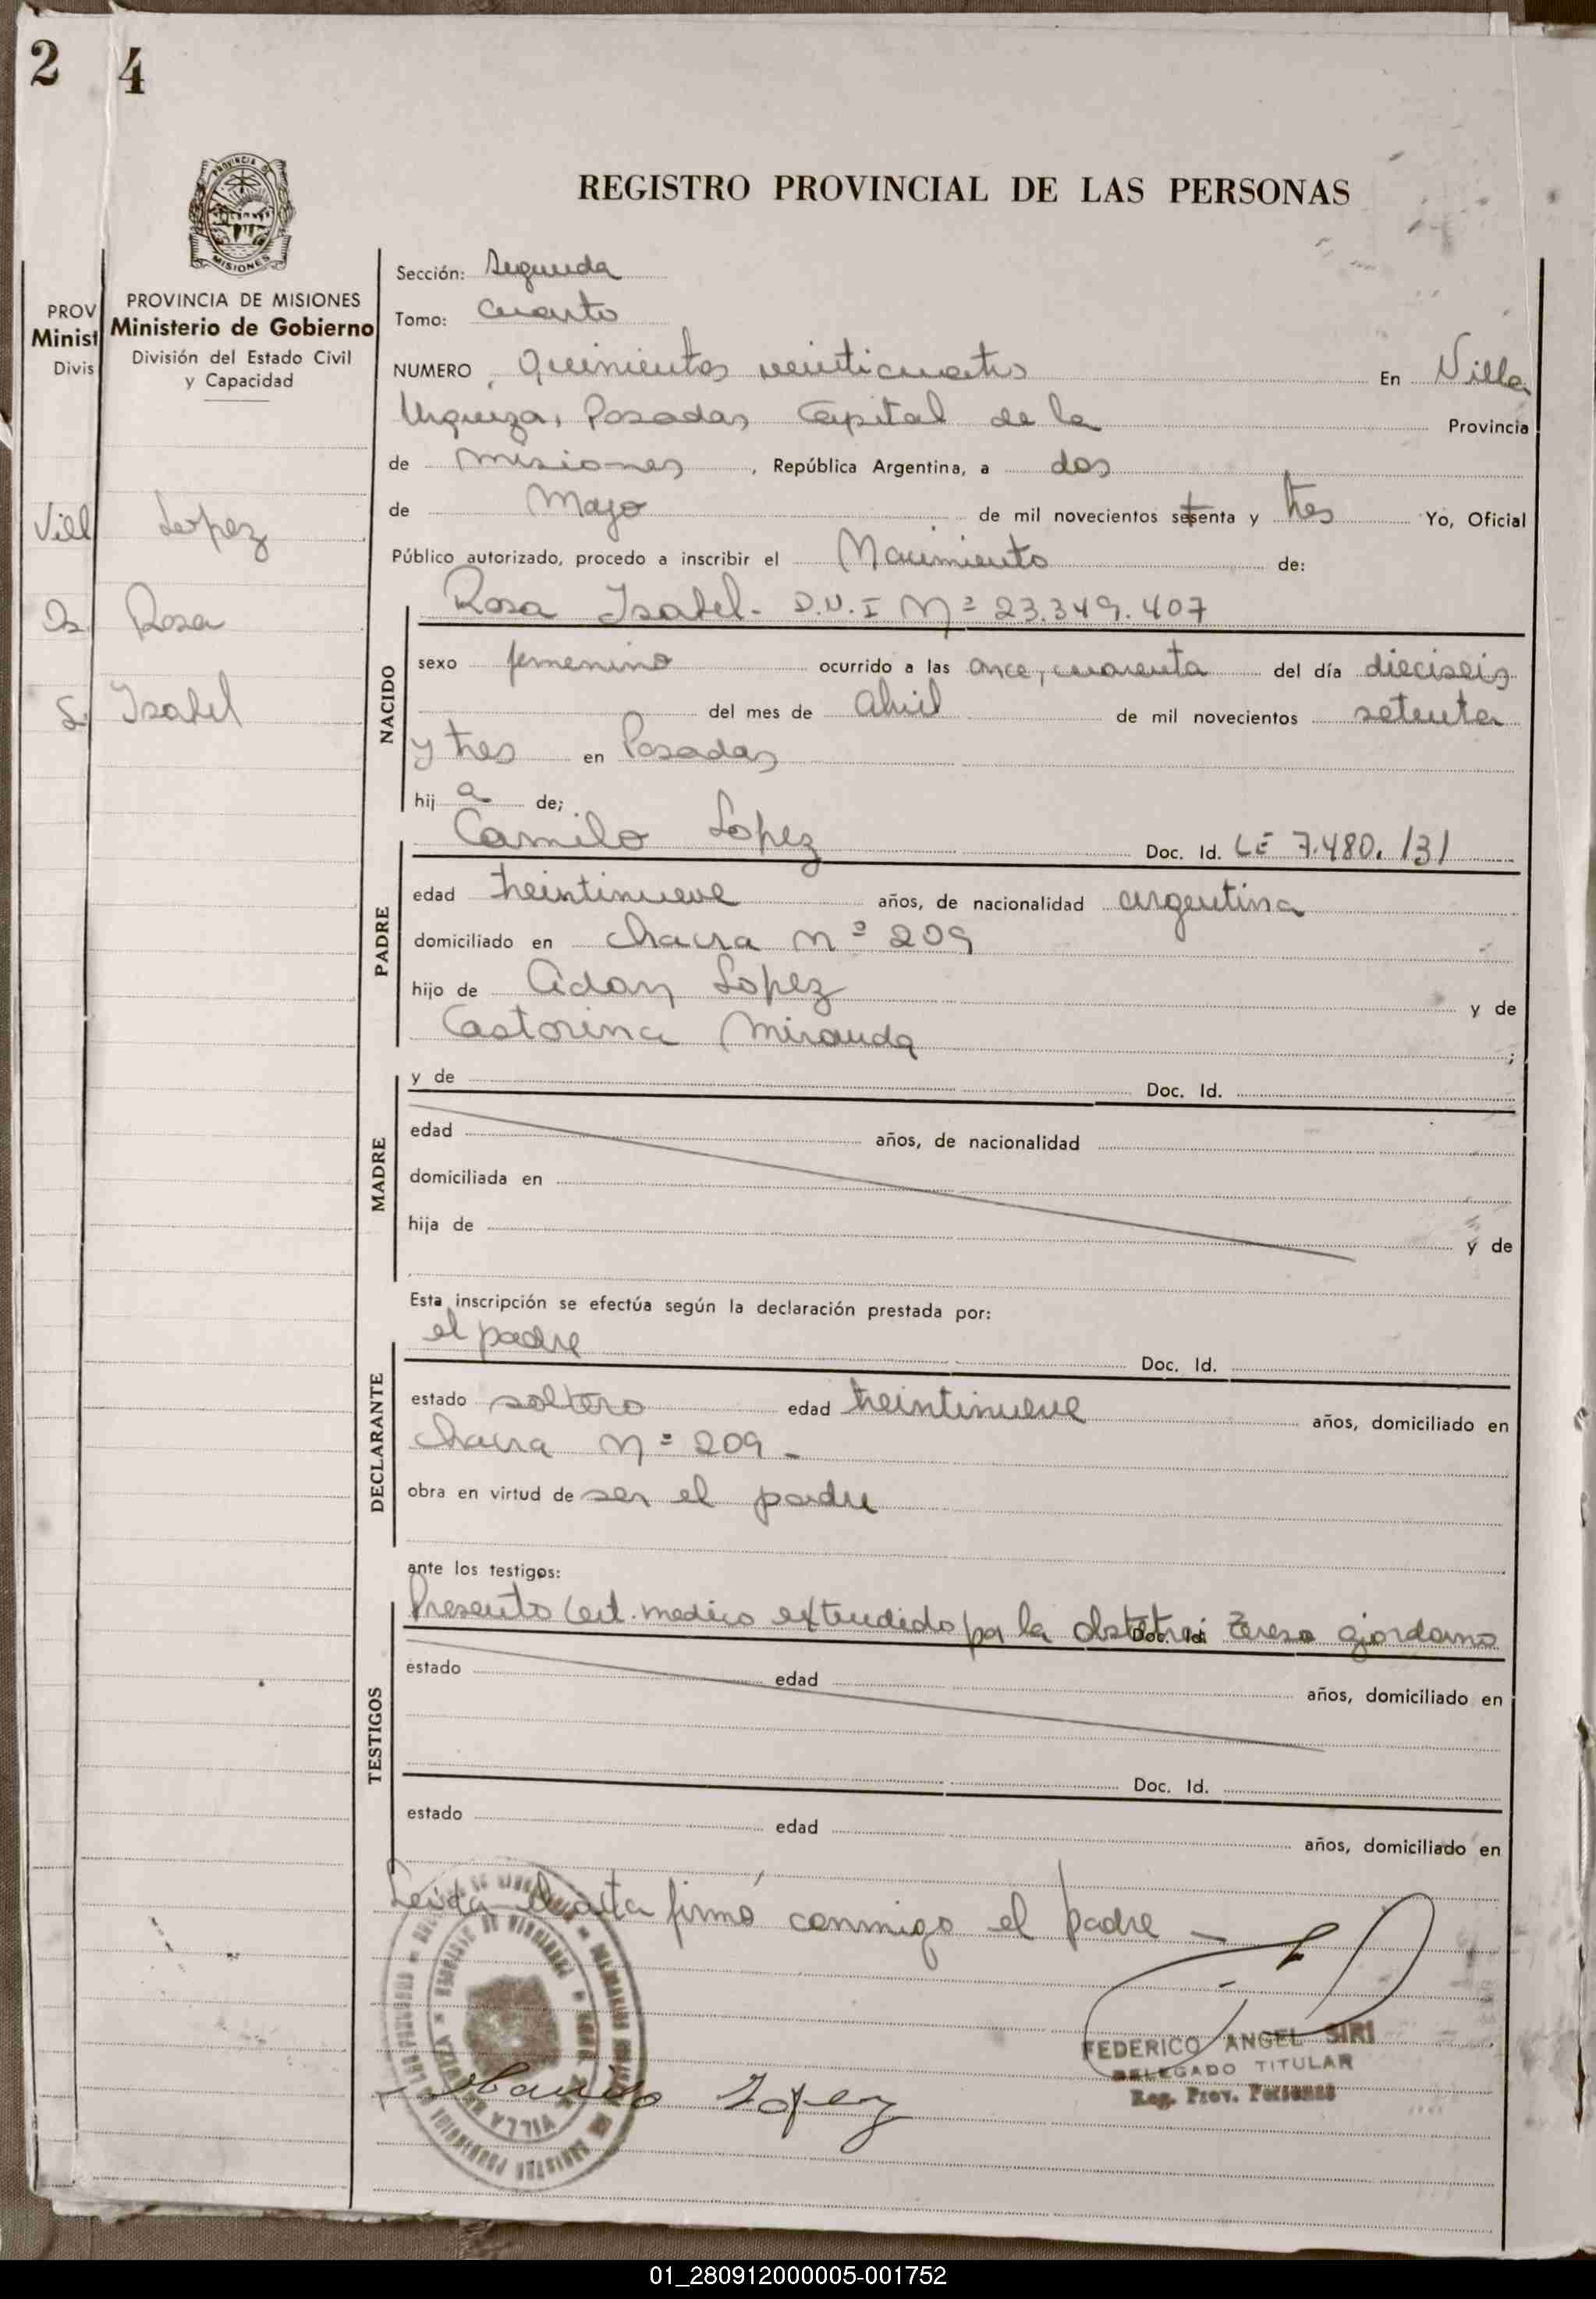 2 4
PROVINCIA D
MISIONES
REGISTRO PROVINCIAL DE LAS PERSONAS
PROV
Minist
Divis
PROVINCIA DE MISIONES
Ministerio de Gobierno
División del Estado Civil
y Capacidad
Vill
Lopez
Rosa
Isabel
Sección: Segunda
Tomo: Cuarto
NUMERO Quinientos veinticuatro En Villa
Urquiza, Posadas Capital de la Provincia
de Misiones, República Argentina, a dos
de Mayo de mil novecientos setenta y tres Yo, Oficial
Público autorizado, procedo a inscribir el Nacimiento de:
NACIDO
Rosa Isabel- D.N.I Nº 23.349.407
sexo femenino ocurrido a las once, cuarenta del día dieciseis
del mes de Abril de mil novecientos setenta
y tres en Posadas
hij a de;
PADRE
Camilo Lopez Doc. Id. LE 7.480.131
edad treintinueve años, de nacionalidad argentina
domiciliado en Chacra Nº 209
hijo de Adan Lopez y de
Castorina Miranda ;
MADRE
y de Doc. Id.
edad años, de nacionalidad
domiciliada en
hija de y de
Esta inscripción se efectúa según la declaración prestada por:
DECLARANTE
el padre Doc. Id.
estado soltero edad treintinueve años, domiciliado en
Chacra Nº 209 -
obra en virtud de ser el padre
ante los testigos:
TESTIGOS
Presento Cert. medico extendido por la obstetra Doc. Id. Teresa Giordano
estado edad años, domiciliado en
Doc. Id.
estado edad años, domiciliado en
Leida el acta firmó conmigo el padre -
FEDERICO ANGEL SIRI
DELEGADO TITULAR
Reg. Prov. Personas
VILLA
Lopez
01_280912000005-001752